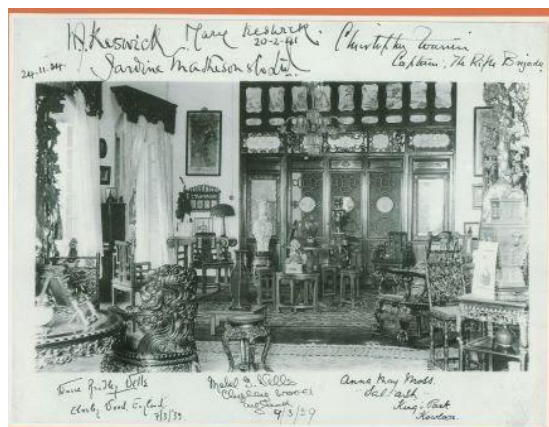 W. Keswick
Mary Keswick.
20-2-41
Christopher Warren
Captain, The Rifle Brigade
24.11.34
Jardine Matheson & Co Ltd.
Bradley Wells
Chorley Wood, England.
7/3/39
Mabel G. Wells
Chorley Wood
England
9/3/39
Anna May Moss.
King's Park
Kowloon.